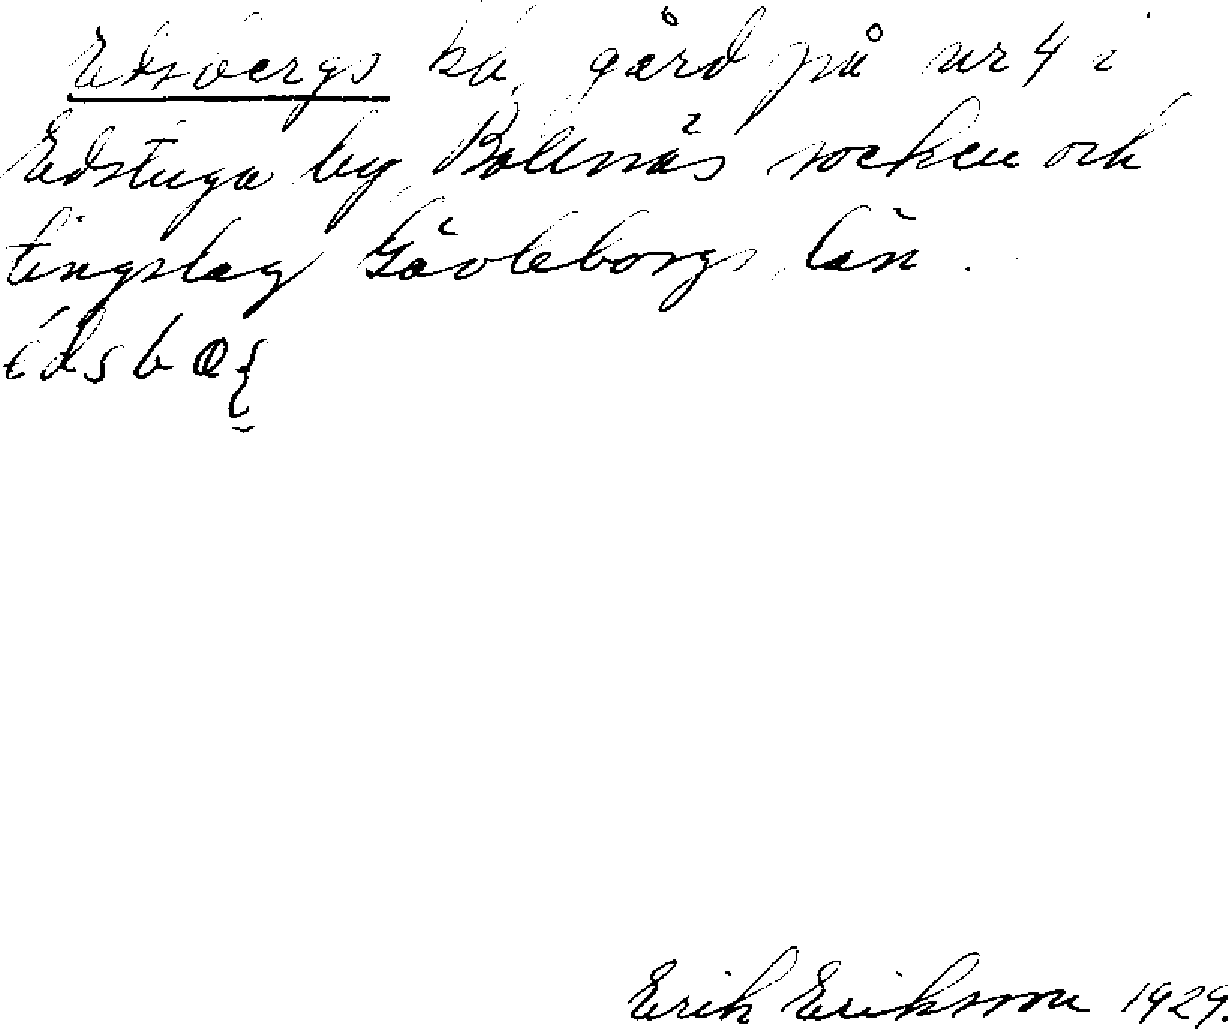 Edsbergs ka, gård på nr 4 i
Edstuga by, Bollnäs socken och
tingslag Gävleborgs län.
Erik Eriksson 1929.